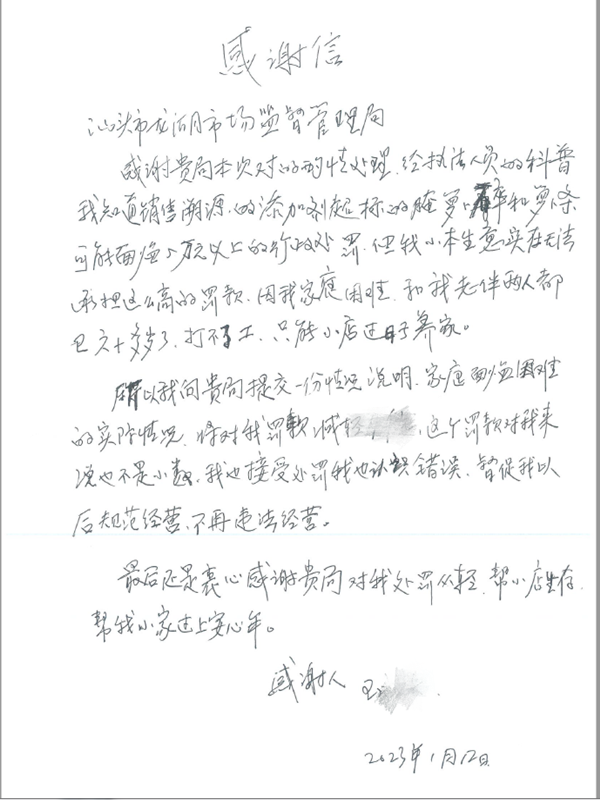 感谢信
汕头市龙湖市场监督管理局
感谢贵局本次对的酌情处理,给执法人员的科普
我知道销售溯源的添加剂超标的腌萝卜和萝卜条
可能面临5万元以上的行政处罚,但我小本生意实在无法
承担这么高的罚款,因我家庭困难,和我老伴两人都
已六十多岁了,打不了工,只能小店过日子养家。
所以我向贵局提交一份情况说明,家庭面临困难
的实际情况,将对我罚款减轻,这个罚款对我来
说也不是小数,我也接受处罚我也认识错误,督促我以
后规范经营,不再违法经营。
最后还是衷心感谢贵局对我处罚从轻,帮小店生存,
帮我小家过上安心年。
感谢人
2023年1月12日